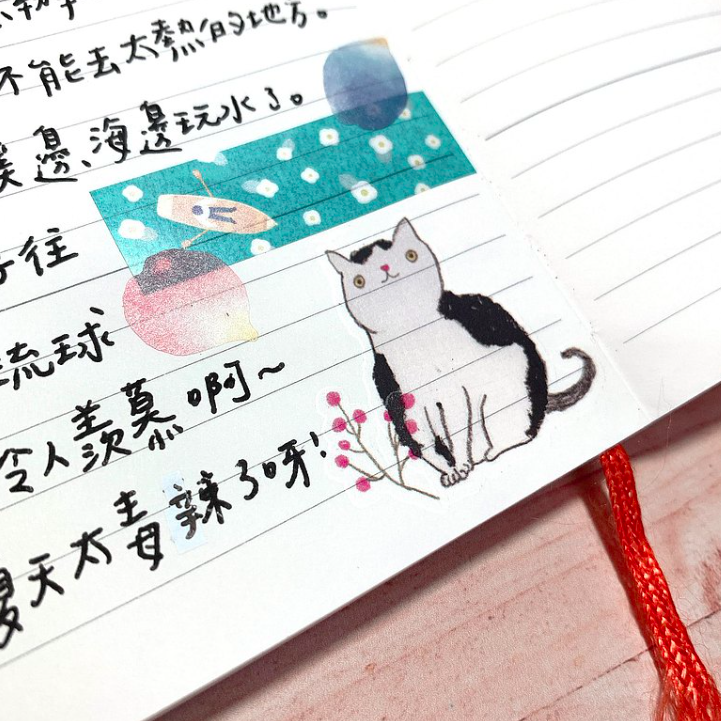 不能去太熱的地方。
邊、海邊玩水了。
往
琉球
令人羨慕啊~
夏天太毒辣了呀!